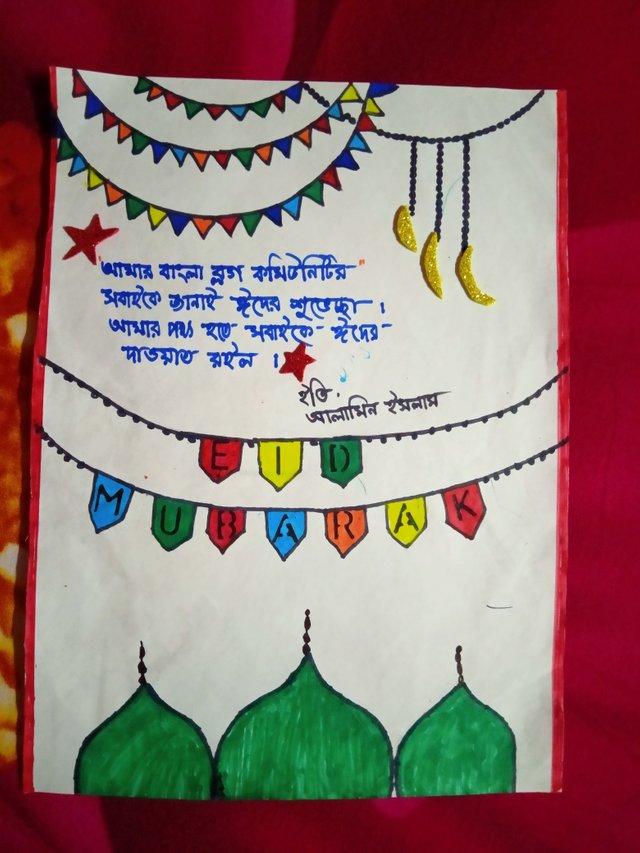 "আমার বাংলা ব্লগ কমিউনিটির"
সবাইকে জানাই ঈদের শুভেচ্ছা।
আমার পক্ষ হতে সবাইকে ঈদের
দাওয়াত রইল।
ইতি
আলামিন ইসলাম
EID
MUBARAK